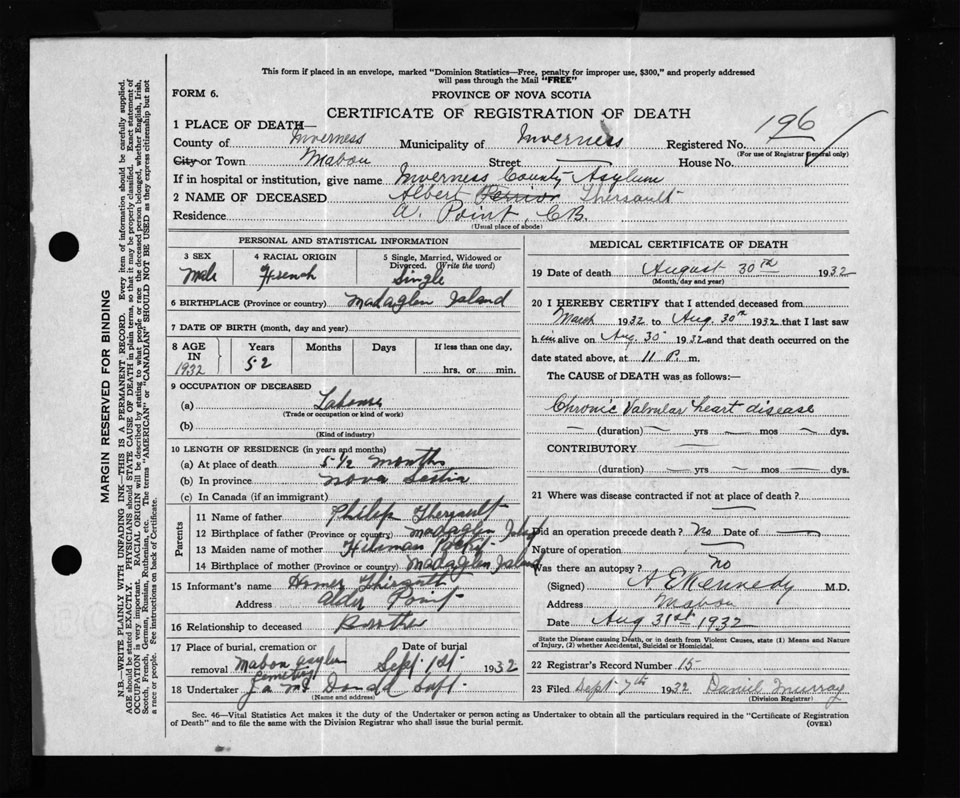 This form if placed in an envelope, marked "Dominion Statistics—Free, penalty for improper use, $300," and properly addressed
will pass through the Mail "FREE"
FORM 6.
PROVINCE OF NOVA SCOTIA
CERTIFICATE OF REGISTRATION OF DEATH
196
1 PLACE OF DEATH—
County of Inverness Municipality of Inverness Registered No.
(For use of Registrar General only)
City or Town Mabou Street — House No.
If in hospital or institution, give name Inverness County Asylum
2 NAME OF DECEASED Albert Thersault
Residence A. Point, C.B.
(Usual place of abode)
PERSONAL AND STATISTICAL INFORMATION
3 SEX Male
4 RACIAL ORIGIN French
5 Single, Married, Widowed or Divorced. (Write the word) Single
6 BIRTHPLACE (Province or country) Madaglen Island
7 DATE OF BIRTH (month, day and year)
8 AGE IN 1932 Years 52 Months Days If less than one day, hrs. or min.
9 OCCUPATION OF DECEASED
(a) Labourer
(Trade or occupation or kind of work)
(b)
(Kind of industry)
10 LENGTH OF RESIDENCE (in years and months)
(a) At place of death 5 1/2 months
(b) In province Nova Scotia
(c) In Canada (if an immigrant)
Parents
11 Name of father Philip Thersault
12 Birthplace of father (Province or country) Madaglen Island
13 Maiden name of mother
14 Birthplace of mother (Province or country) Madaglen Island
15 Informant's name Homer Thirsault
Address Alder Point
16 Relationship to deceased Brother
17 Place of burial, cremation or removal Mabou Asylum Cemetery
Date of burial Sept. 1st. 1932
18 Undertaker J. A. McDonald Supt.
(Name and address)
MEDICAL CERTIFICATE OF DEATH
19 Date of death August 30th 1932
(Month, day and year)
20 I HEREBY CERTIFY that I attended deceased from
March 1932 to Aug. 30th 1932 that I last saw
him alive on Aug. 30 1932 and that death occurred on the
date stated above, at 11 P. m.
The CAUSE of DEATH was as follows:—
Chronic Valvular heart disease
(duration) — yrs — mos — dys.
CONTRIBUTORY
(duration) — yrs — mos — dys.
21 Where was disease contracted if not at place of death?
Did an operation precede death? No Date of —
Nature of operation
Was there an autopsy? No
(Signed) A E Kennedy M.D.
Address Mabou
Date Aug 31st 1932
State the Disease causing Death, or in death from Violent Causes, state (1) Means and Nature
of Injury, (2) whether Accidental, Suicidal or Homicidal.
22 Registrar's Record Number 15
23 Filed Sept 7th 1932 Daniel Murray
(Division Registrar)
Sec. 46—Vital Statistics Act makes it the duty of the Undertaker or person acting as Undertaker to obtain all the particulars required in the "Certificate of Registration
of Death" and to file the same with the Division Registrar who shall issue the burial permit.
(OVER)
MARGIN RESERVED FOR BINDING
N.B.—WRITE PLAINLY WITH UNFADING INK—THIS IS A PERMANENT RECORD. Every item of information should be carefully supplied.
AGE should be stated EXACTLY. PHYSICIANS should STATE CAUSE OF DEATH in plain terms, so that it may be properly classified. Exact statement of
OCCUPATION is very important. RACIAL ORIGIN will be described by stating to what people or race the deceased person belonged, whether English, Irish,
Scotch, French, German, Russian, Ruthenian, etc. The terms "AMERICAN" or "CANADIAN" SHOULD NOT BE USED as they express citizenship but not
a race or people. See instructions on back of Certificate.